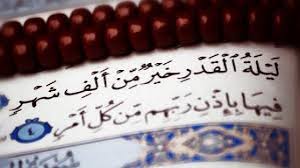 لَيْلَةُ ٱلْقَدْرِ خَيْرٌ مِّنْ أَلْفِ شَهْرٍ
فِيهَا بِإِذْنِ رَبِّهِم مِّن كُلِّ أَمْرٍ ٤